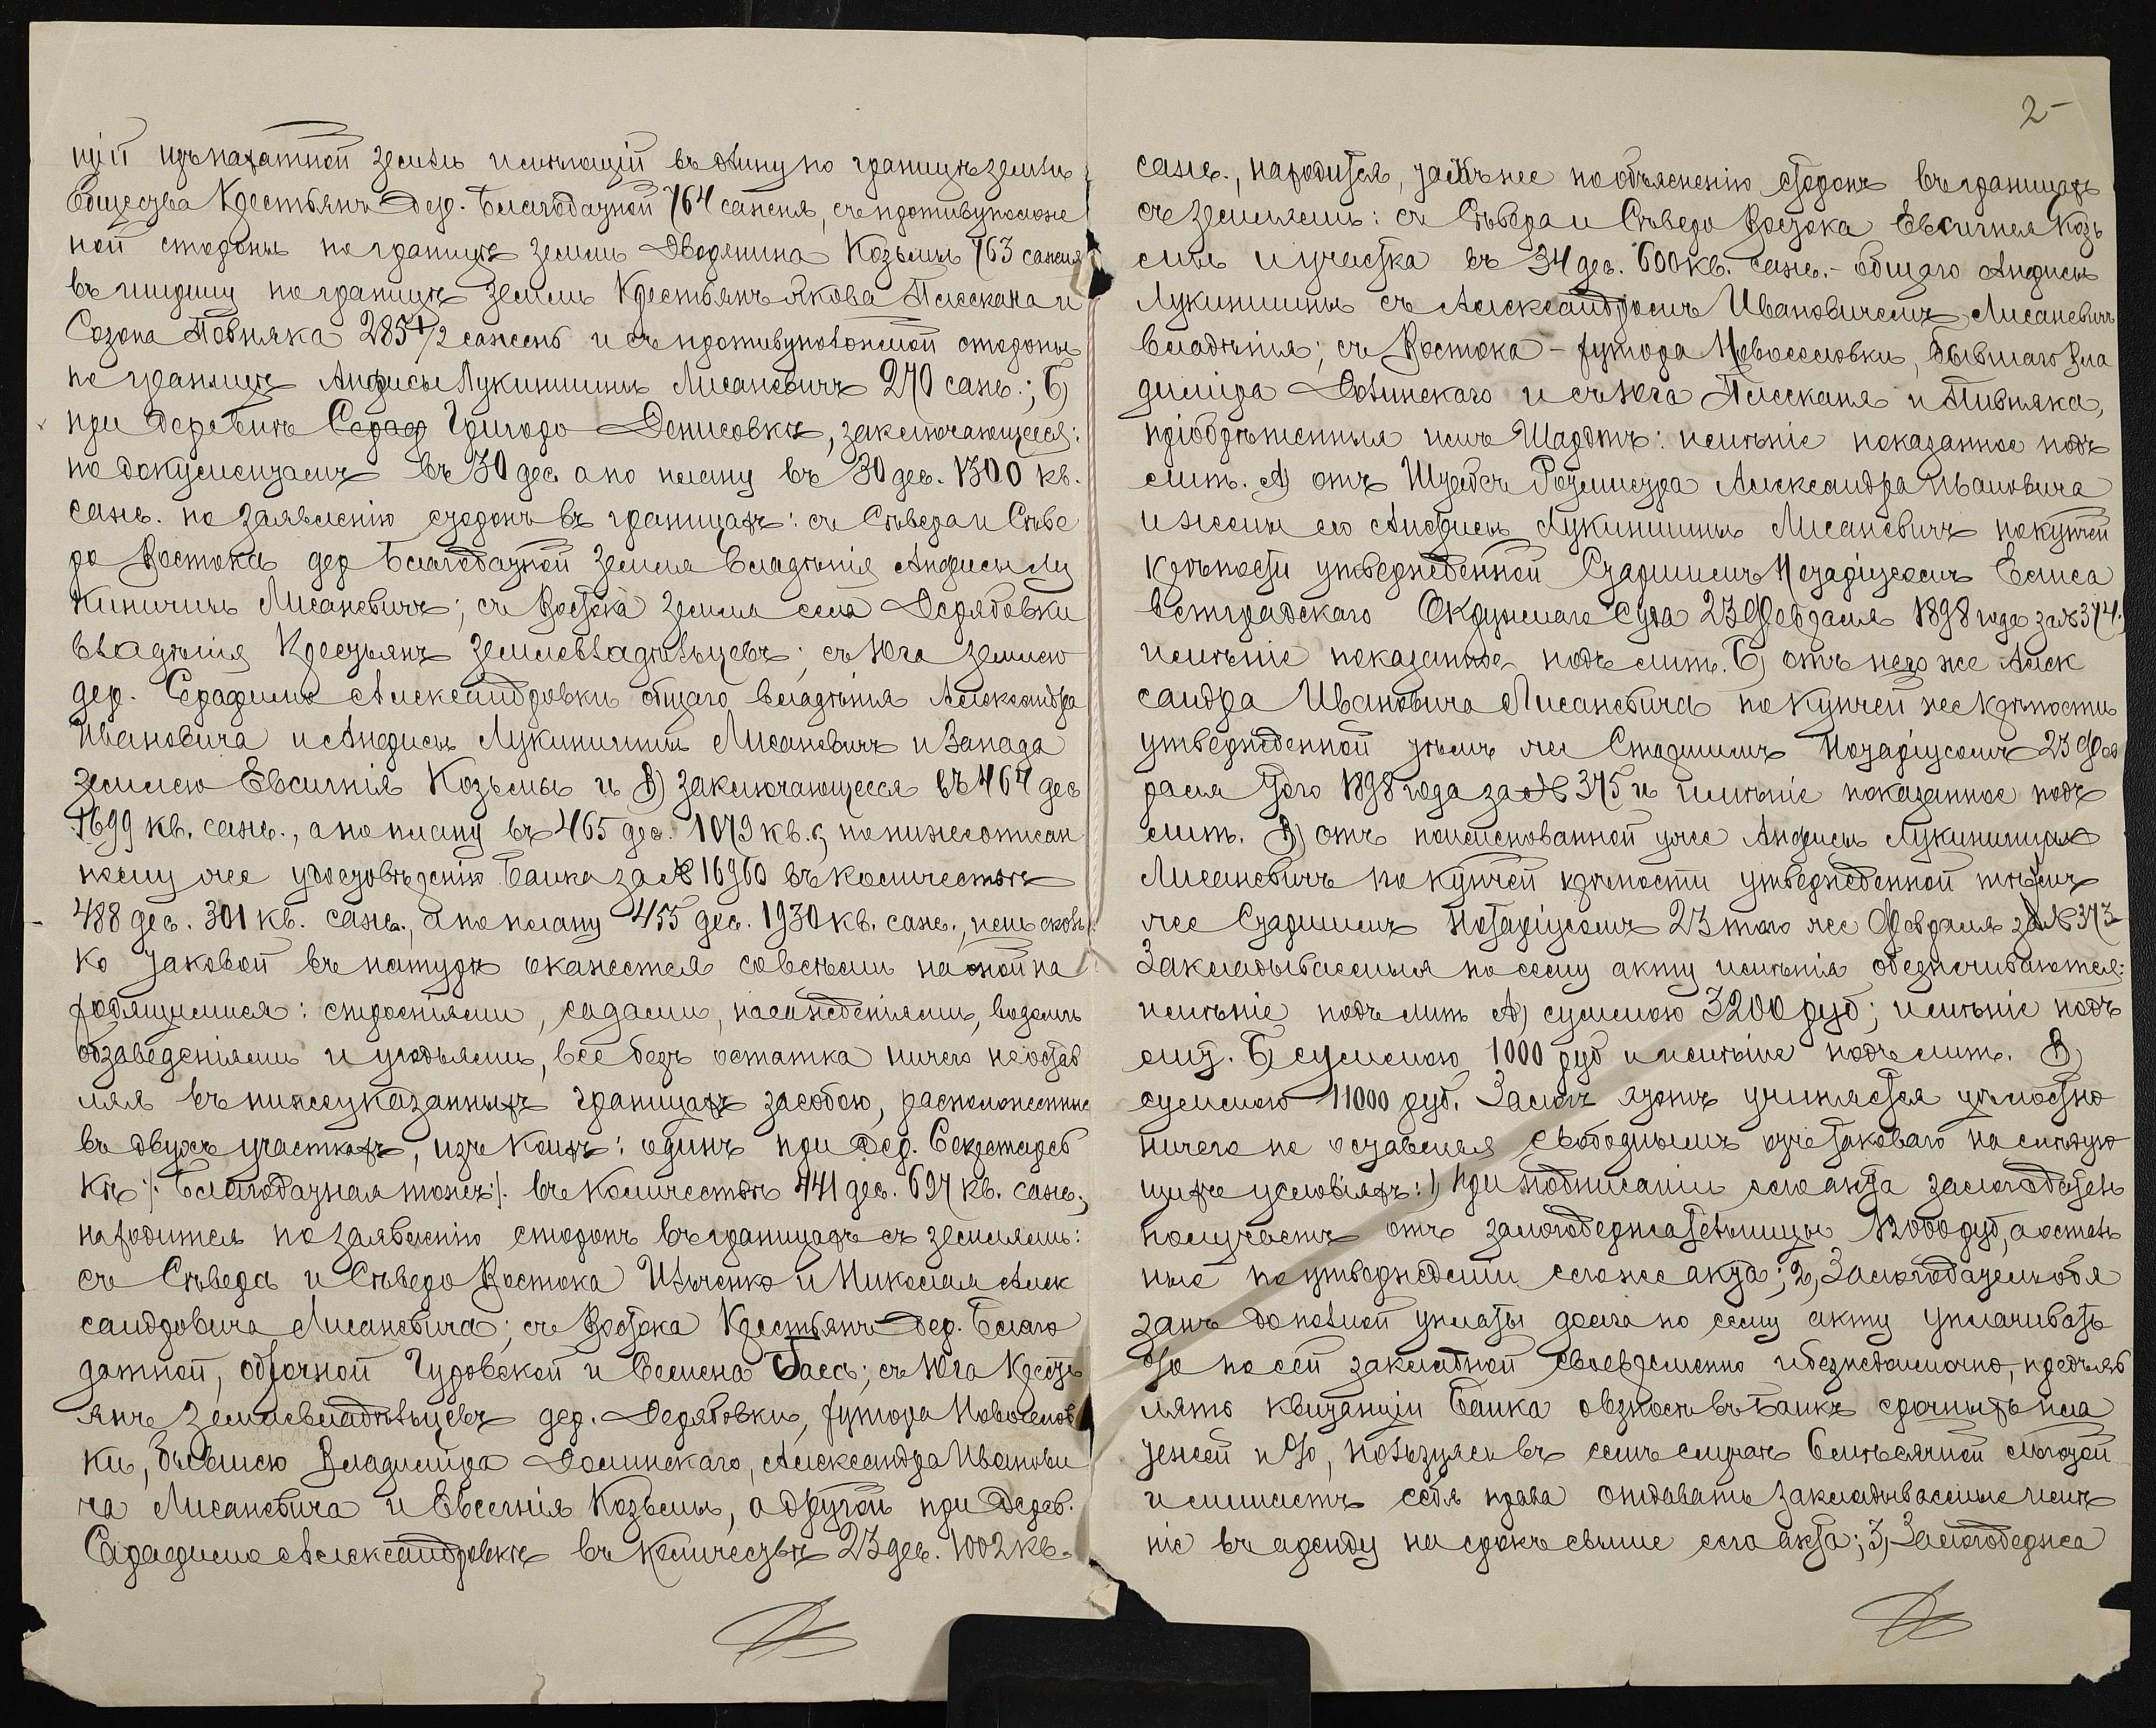 щій изъ пахатной земли имѣющій въ длину по границѣ земли
Общества Крестьянъ Дер. Благодатной 764 сажня, съ противуполож
ной стороны по границѣ земли Дворянина Козьмы 763 сажня
въ ширину по границѣ земли Крестьянъ Якова Плескача и
Созона Повняка 285 1/2 сажень и съ противуположной стороны
по границѣ Анфисы Лукинишны Лисаневичъ 270 саж.; Б)
при деревнѣ Григоро-Денисовкѣ, заключающееся:
по документамъ въ 30 дес. а по плану въ 30 дес. 1300 кв.
саж. по заявленію сторонъ въ границахъ: съ Сѣвера и Сѣве
ро Востока дер Благодатной земля владѣнія Анфисы Лу
кинични Лисаневичъ; съ Востока земля села Дерябовки
владѣнія Крестьянъ землевладѣльцевъ; съ Юга землею
дер. Серафимо Александровки общаго владѣнія Александра
Ивановича и Анфисы Лукиничны Лисаневичъ и Запада
землею Евсигнія Козьмы и В) заключающееся въ 464 дес
1699 кв. саж., а по плану въ 465 дес. 1079 кв. с, по нижеописан
ному же удостовѣренію Банка за № 16960 въ количествѣ
488 дес. 301 кв. саж., а по плану 455 дес. 1930 кв. саж., или сколь
ко таковой въ натурѣ окажется со всѣми на оной на
ходящимися: строеніями, садами, насажденіями, водами
обзаведеніями и угодьями, все безъ остатка ничего не остав
ляя въ нижеуказанныхъ границахъ за собою, расположенные
въ двухъ участкахъ, изъ коихъ: одинъ при Дер. Секретарев
кѣ /: Благодатная тожъ :/ въ количествѣ 441 дес. 697 кв. саж.,
находится по заявленію сторонъ въ границахъ съ землями:
съ Сѣвера и Сѣверо Востока Ильченко и Николая Алек
сандровича Лисаневича; съ Востока Крестьянъ дер. Благо
датной, оброчной Чудовской и Семена Гаесъ; съ Юга Кресть
янъ Землевладѣльцевъ дер. Дерябовки, хутора Новоселов
ки, бывшею Владиміра Долинскаго, Александра Иванови
ча Лисаневича и Евсегнія Козьмы, а другой при Дерев.
Серафимо Александровкѣ въ количествѣ 23 дес. 1002 кв.
2-
саж., находится, также по объясненію сторонъ въ границахъ
съ землями: съ Сѣвера и Сѣверо Востока Евсигнея Козь
мы и участка въ 34 дес. 600 кв. саж. - общаго Анфисы
Лукинишны съ Александромъ Ивановичемъ Лисаневичъ
владѣнія; съ Востока - хутора Новоселовки, бывшаго Вла
диміра Долинскаго и съ Юга Плескача и Пивняка,
пріобрѣтенныя имъ Шардтъ: имѣніе показанное подъ
лит. А) отъ Штабсъ Ротмистра Александра Ивановича
и жены его Анфисы Лукинишны Лисаневичъ по купчей
крѣпости утвержденной Старшимъ Нотаріусомъ Елиса
ветградскаго Окружнаго Суда 23 Февраля 1898 года за № 374.
имѣніе показанное подъ лит. Б) отъ него же Алек
сандра Ивановича Лисаневича по купчей же крѣпости
утвержденной тѣмъ же Старшимъ Нотаріусомъ 23 Фев
раля того 1898 года за № 375 и имѣніе показанное подъ
лит. В) отъ поименованной уже Анфисы Лукинишны
Лисаневичъ по купчей крѣпости утвержденной тѣмъ
же Старшимъ Нотаріусомъ 23 того же Февраля за № 373
Закладываемыя по сему акту имѣнія обезпечиваются:
имѣніе подъ лит А) суммою 3200 руб; имѣніе подъ
лит. Б суммою 1000 руб и имѣніе подъ лит. В)
суммою 11000 руб. Залогъ этотъ учиняется цѣлостно
ничего не оставляя свободнымъ отъ таковаго на слѣдую
щихъ условіяхъ: 1) При подписаніи сего акта залогодатель
получаетъ отъ залогодержательницы 12000 руб, а осталь
ные по утвержденіи сего же акта; 2) Залогодатель обя
занъ до полной уплаты долга по сему акту уплачивать
%о по сей закладной своевременно и безнедоимочно, предъяв
лять квитанціи Банка о взносѣ въ Банкъ срочныхъ пла
тежей и %о, пользуясь въ семъ случаѣ 6 мѣсячной льготой
и лишаетъ себя права отдавать закладываемые имѣ
ніе въ аренду на срокъ свыше сего акта; 3) Залогодержа